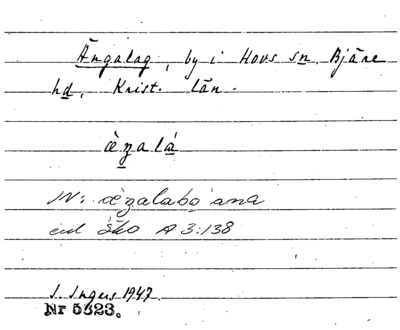 Ängalag, by i Hovs sn. Bjäre
hd, Krist. län.
æ̀ŋalá
IN: æ̀ŋalabo ̀ana
enl SkO A 3:138
I. Ingers 1947.
Nr 5323.